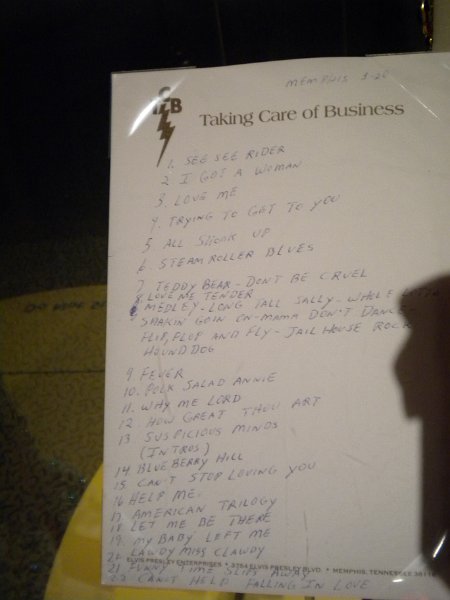 MEMPHIS 3-20
TCB
Taking Care of Business
1. SEE SEE RIDER
2. I GOT A WOMAN
3. LOVE ME
4. TRYING TO GET TO YOU
5. ALL SHOOK UP
6. STEAMROLLER BLUES
7. TEDDY BEAR - DON'T BE CRUEL
8. LOVE ME TENDER
MEDLEY - LONG TALL SALLY - WHOLE LOTTA
SHAKIN' GOIN ON - MAMA DON'T DANCE
FLIP, FLOP AND FLY - JAIL HOUSE ROCK
HOUND DOG
9. FEVER
10. POLK SALAD ANNIE
11. WHY ME LORD
12. HOW GREAT THOU ART
13. SUSPICIOUS MINDS
(INTROS)
14 BLUEBERRY HILL
15 CAN'T STOP LOVING YOU
16 HELP ME
17 AMERICAN TRILOGY
18 LET ME BE THERE
19. MY BABY LEFT ME
20 LAWDY MISS CLAWDY
ELVIS PRESLEY ENTERPRISES • 3764 ELVIS PRESLEY BLVD. • MEMPHIS, TENNESSEE 38116
21 FUNNY TIME SLIPS AWAY
22 CAN'T HELP FALLING IN LOVE